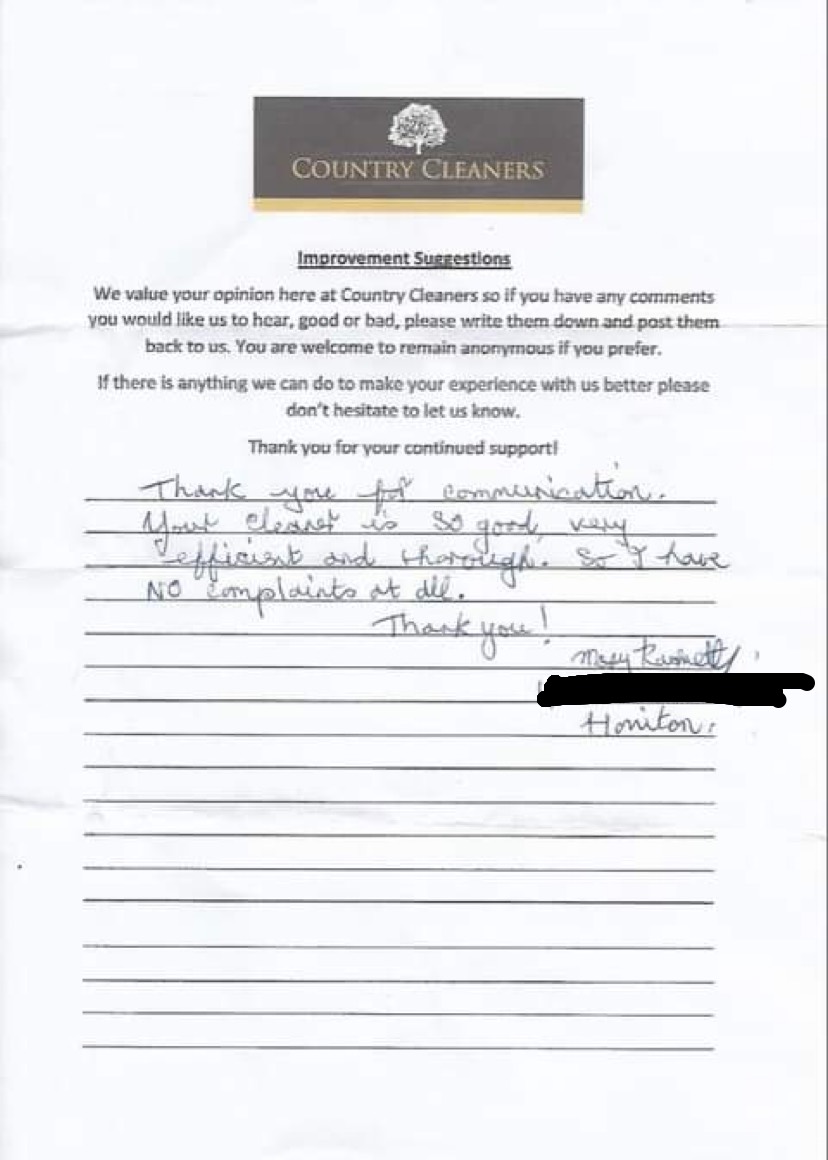 COUNTRY CLEANERS
Improvement Suggestions
We value your opinion here at Country Cleaners so if you have any comments
you would like us to hear, good or bad, please write them down and post them
back to us. You are welcome to remain anonymous if you prefer.
If there is anything we can do to make your experience with us better please
don't hesitate to let us know.
Thank you for your continued support!
Thank you for communication.
Your cleaner is so good, very
efficient and thorough. So I have
NO complaints at all.
Thank you!
Mary
Honiton.